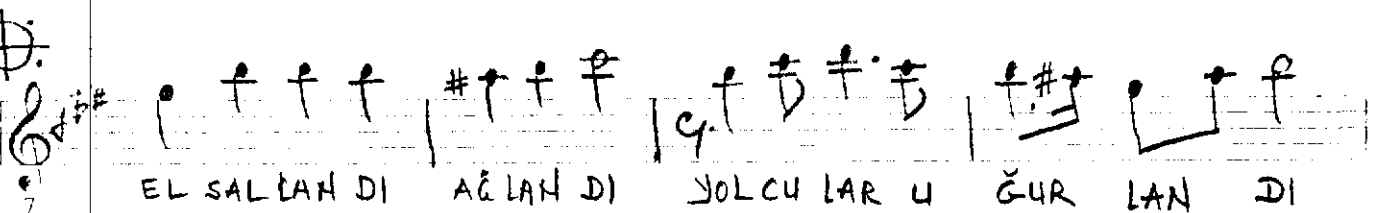 EL SALLAN DI AĞ LAN DI YOLCU LAR U ĞUR LAN DI
7